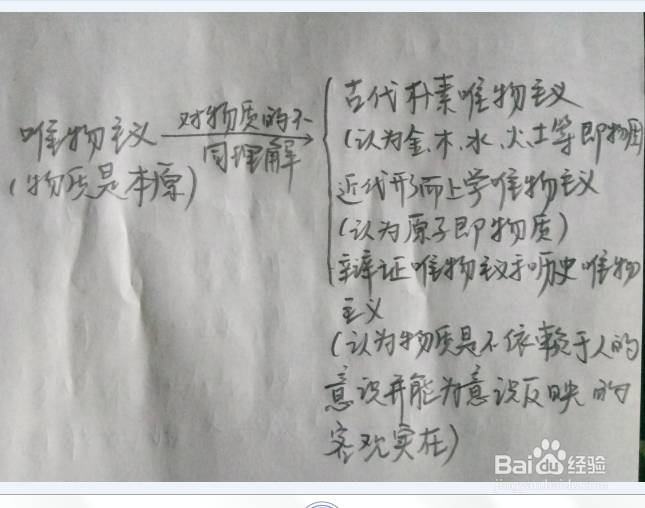 唯物主义
(物质是本原)
对物质的不
同理解
古代朴素唯物主义
(认为金、木、水、火、土等即物质)
近代形而上学唯物主义
(认为原子即物质)
辩证唯物主义和历史唯物
主义
(认为物质是不依赖于人的
意识并能为意识反映的
客观实在)
Baidu经验
jingyan.baidu.com